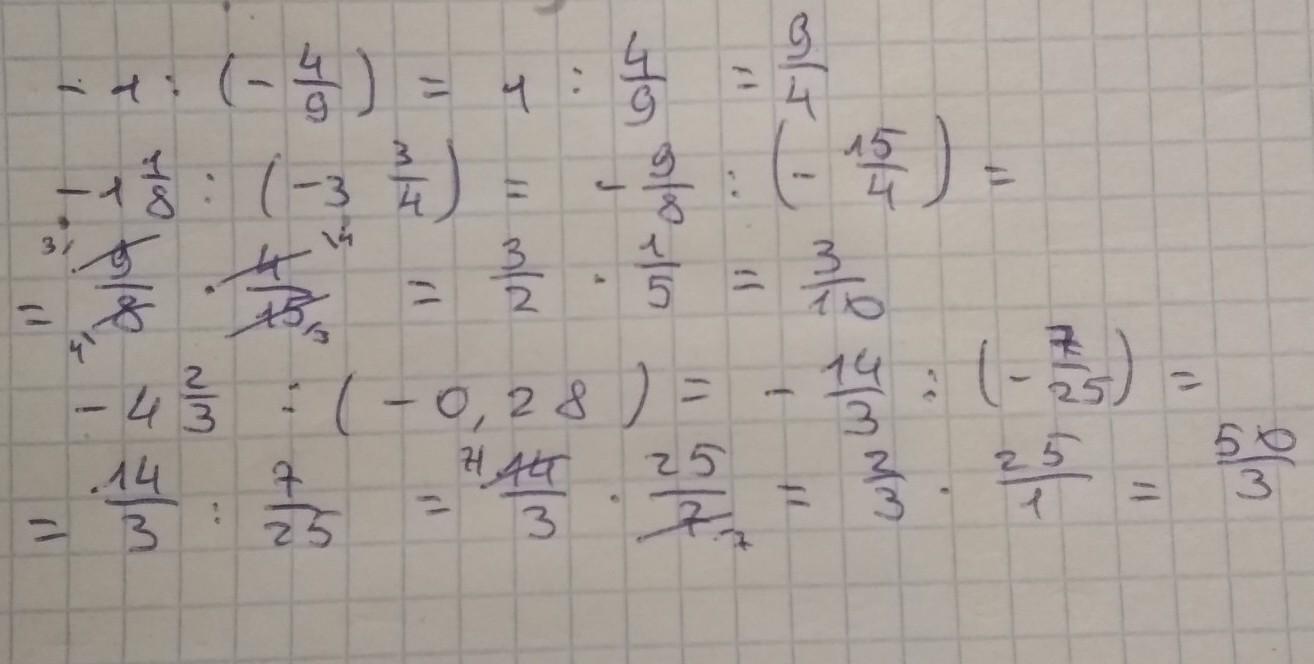 -1 : (-4/9) = 1 : 4/9 = 9/4
-1 1/8 : (-3 3/4) = -9/8 : (-15/4) =
= 9/8 · 4/15 = 3/2 · 1/5 = 3/10
-4 2/3 : (-0,28) = -14/3 : (-7/25) =
= 14/3 : 7/25 = 14/3 · 25/7 = 2/3 · 25/1 = 50/3